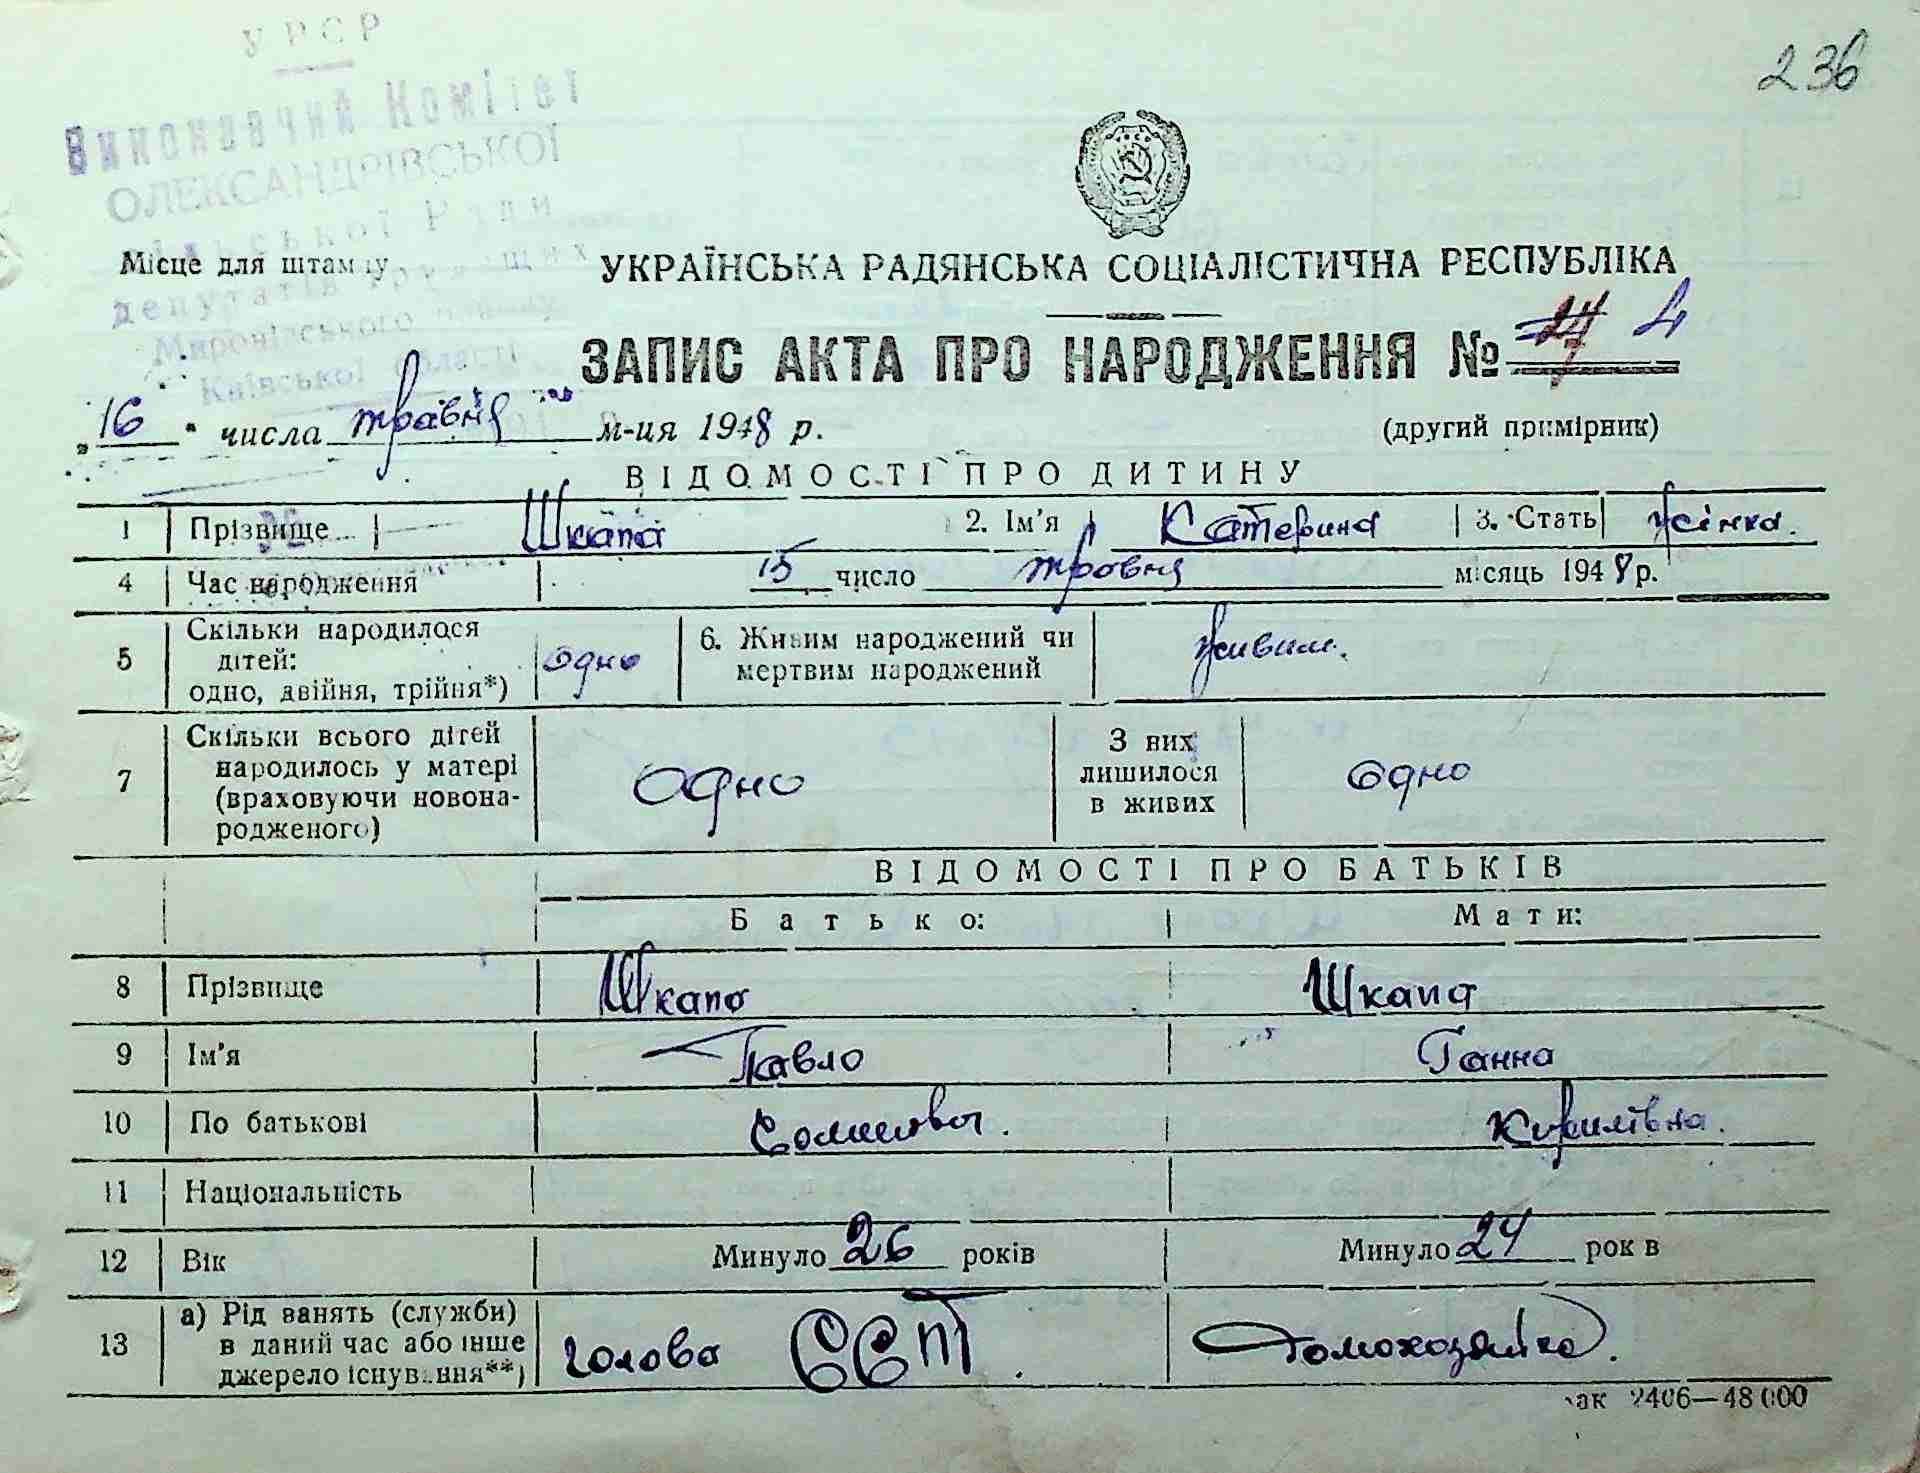 УРСР
236
Виконавчий Комітет
ОЛЕКСАНДРІВСЬКОЇ
сільської Ради
депутатів трудящих
Миронівського району
Київської області
Місце для штампу
УКРАЇНСЬКА РАДЯНСЬКА СОЦІАЛІСТИЧНА РЕСПУБЛІКА
ЗАПИС АКТА ПРО НАРОДЖЕННЯ № 4
„16" числа травня м-ця 1948 р.
(другий примірник)
ВІДОМОСТІ ПРО ДИТИНУ
1 Прізвище Шкапа 2. Ім'я Катерина 3. Стать жінка.
4 Час народження 15 число травня місяць 1948 р.
5 Скільки народилося дітей: одно, двійня, трійня*) одно 6. Живим народжений чи мертвим народжений живим.
7 Скільки всього дітей народилось у матері (враховуючи новонародженого) одно З них лишилося в живих одно
ВІДОМОСТІ ПРО БАТЬКІВ
Батько: Мати:
8 Прізвище Шкапо Шкапа
9 Ім'я Павло Ганна
10 По батькові
11 Національність
12 Вік Минуло 26 років Минуло 24 рок в
13 а) Рід занять (служби) в даний час або інше джерело існування**) голова ССТ. Домохозяйка.
ак 2406—48 000